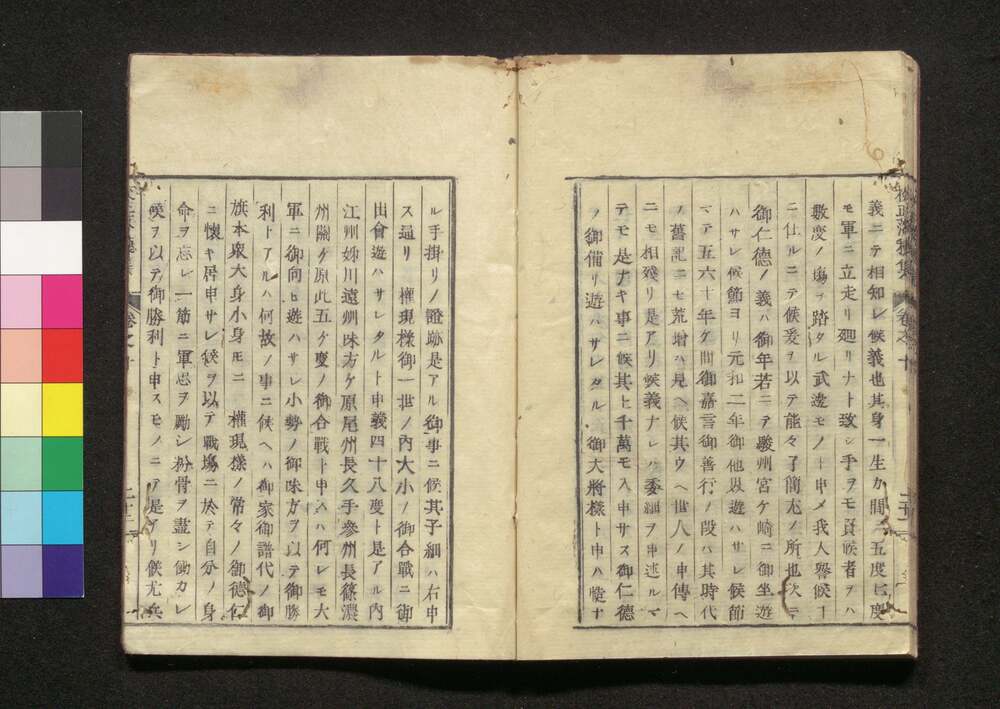 義ニテ相知レ候義也其身一生カ間ニ五度七度
モ軍ニ立走リ廻リナト致シ手ヲモ負候者ヲハ
數度ノ塲ヲ踏タル武邊モノト申メ我人譽候
ニ仕ルニテ候爰ヲ以テ能々了簡尤ノ所也次ニ
御仁德ノ義ハ御年若ニテ駿州宮ケ崎ニ御坐遊
ハサレ候節ヨリ元和二年御他界遊ハサレ候節
マテ五六十年ケ間御嘉言御善行ノ段ハ其時代
ノ舊記ニモ荒增ハ見ヘ候其ウヘ世人ノ申傳ヘ
ニモ相殘リ是アリ候義ナレハ委細ヲ申述ルマ
テモ是ナキ事ニ候其上千萬モ入申サス御仁德
ノ御備リ遊ハサレタル御大將樣ト申ハ慥ナ
ル手掛リノ證跡是アル御事ニ候其子細ハ右申
ス通リ 權現樣御一世ノ內大小ノ御合戰ニ御
出會遊ハサレタルト申義四十八度ト是アル內
江州姉川遠州味方ケ原尾州長久手參州長篠濃
州關ケ原此五ケ度ノ御合戰ト申ハ何レモ大
軍ニ御向ヒ遊ハサレ小勢ノ御味方ヲ以テ御勝
利トアルハ何故ノ事ニ候ヘハ御家御譜代ノ御
旗本衆大身小身モニ 權現樣ノ常々ノ御德仁
ニ懷キ居申サレ候ヲ以テ戰塲ニ於テ自分ノ身
命ヲ忘レ一筋ニ軍忠ヲ勵シ粉骨ヲ盡シ働カレ
候ヲ以テ御勝利ト申スモノニテ是アリ候尤兵
卷之十
二十二
卷之十
二十二